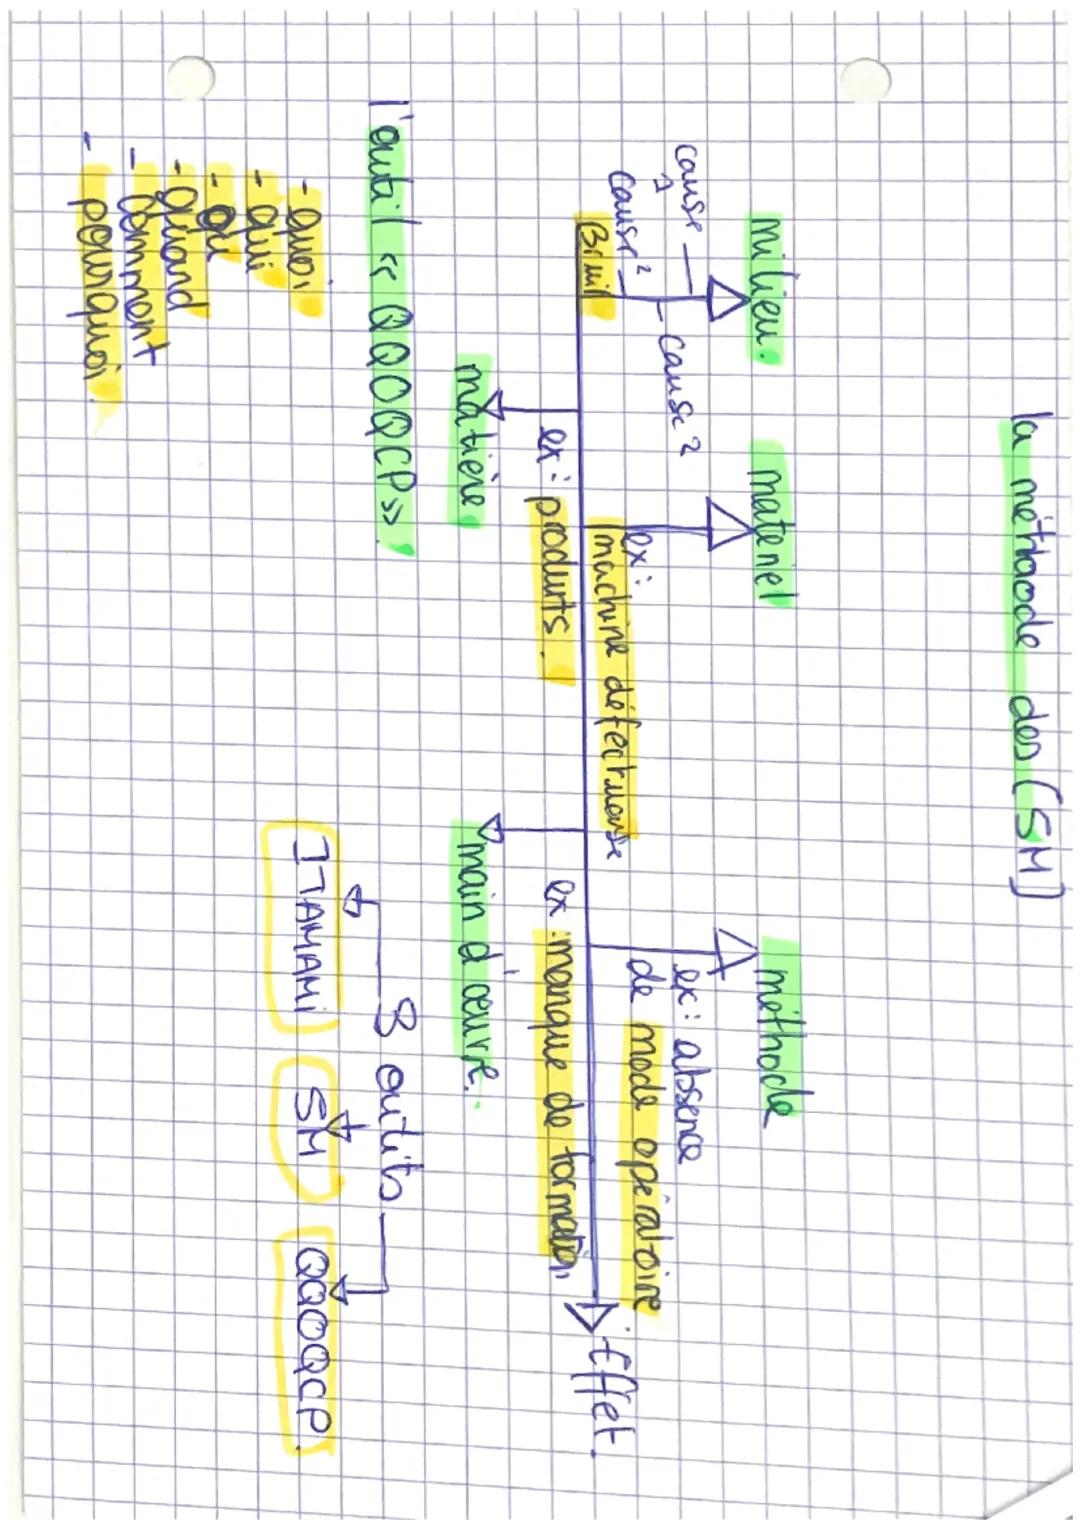 la méthode des (5M)
milieu.
matériel
méthode
cause 1
cause 2
cause 2
Bruit
ex:
machine défectueuse
ex: absence
de mode opératoire
Effet.
ex: produits.
ex: manque de formation
matière
main d'œuvre.
l'outil « QQOQCP ».
- quoi
- qui
- où
- quand
- comment
- pourquoi
3 outils
ITAMAMI
5M
QQOQCP.